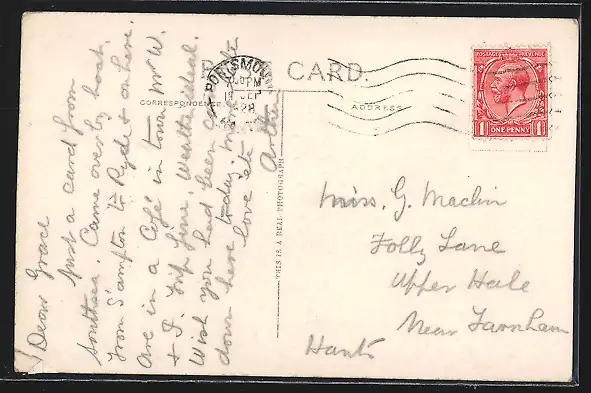 POST CARD.
CORRESPONDENCE
ADDRESS
THIS IS A REAL PHOTOGRAPH
PORTSMOUTH
SEP
28
POSTAGE REVENUE
1 ONE PENNY 1
Dear Grace
Just a card from
Southsea. Came over by boat
from S'ampton to Ryde & on here.
Are in a Café in town Mr W.
& I. Trip fine. Weather ideal.
Wish you had been coming
down here today
love etc
Arthur
Miss. G. Machin
Folly Lane
Upper Hale
Near Farnham
Hants